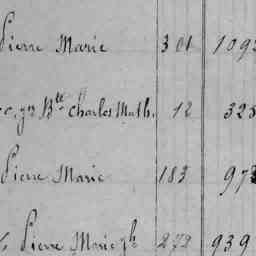 Pierre Marie 301 109
Bte Charles Math. 12 325
Pierre Marie 183 97
Pierre Marie 272 939